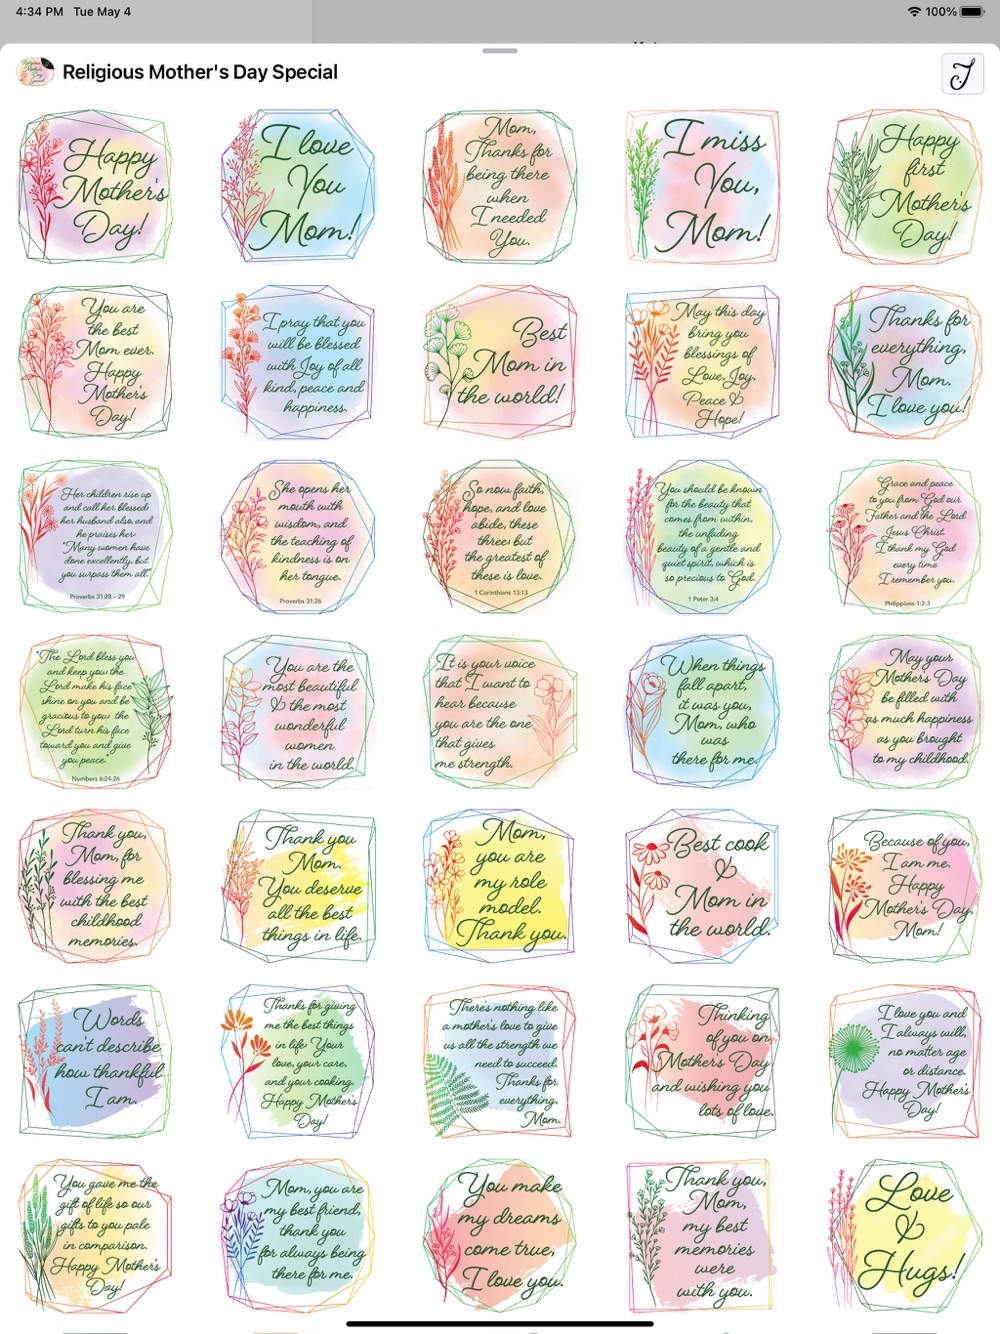 4:34 PM Tue May 4
100%
Religious Mother's Day Special
J
Happy
Mother's
Day!
I love
You
Mom!
Mom,
Thanks for
being there
when
I needed
You.
I miss
You,
Mom!
Happy
first
Mother's
Day!
You are
the best
Mom ever.
Happy
Mother's
Day!
I pray that you
will be blessed
with Joy of all
kind, peace and
happiness.
Best
Mom in
the world!
May this day
bring you
blessings of
Love, Joy,
Peace &
Hope!
Thanks for
everything,
Mom.
I love you!
Her children rise up
and call her blessed;
her husband also, and
he praises her:
"Many women have
done excellently, but
you surpass them all."
Proverbs 31:28 – 29
She opens her
mouth with
wisdom, and
the teaching of
kindness is on
her tongue.
Proverbs 31:26
So now faith,
hope, and love
abide, these
three; but
the greatest of
these is love.
1 Corinthians 13:13
You should be known
for the beauty that
comes from within,
the unfading
beauty of a gentle and
quiet spirit, which is
so precious to God.
1 Peter 3:4
Grace and peace
to you from God our
Father and the Lord
Jesus Christ.
I thank my God
every time
I remember you.
Philippians 1:2-3
"The Lord bless you
and keep you; the
Lord make his face
shine on you and be
gracious to you; the
Lord turn his face
toward you and give
you peace."
Numbers 6:24-26
You are the
most beautiful
& the most
wonderful
women
in the world.
It is your voice
that I want to
hear because
you are the one
that gives
me strength.
When things
fall apart,
it was you,
Mom, who
was
there for me.
May your
Mother's Day
be filled with
as much happiness
as you brought
to my childhood.
Thank you,
Mom, for
blessing me
with the best
childhood
memories.
Thank you
Mom.
You deserve
all the best
things in life.
Mom,
you are
my role
model.
Thank you.
Best cook
&
Mom in
the world.
Because of you,
I am me.
Happy
Mother's Day,
Mom!
Words
can't describe
how thankful
I am.
Thanks for giving
me the best things
in life. Your
love, your care,
and your cooking.
Happy Mother's
Day!
There's nothing like
a mother's love to give
us all the strength we
need to succeed.
Thanks for
everything,
Mom.
Thinking
of you on
Mother's Day
and wishing you
lots of love.
I love you and
I always will,
no matter age
or distance.
Happy Mother's
Day!
You gave me the
gift of life so our
gifts to you pale
in comparison.
Happy Mother's
Day!
Mom, you are
my best friend,
thank you
for always being
there for me.
You make
my dreams
come true,
I love you.
Thank you,
Mom,
my best
memories
were
with you.
Love
&
Hugs!